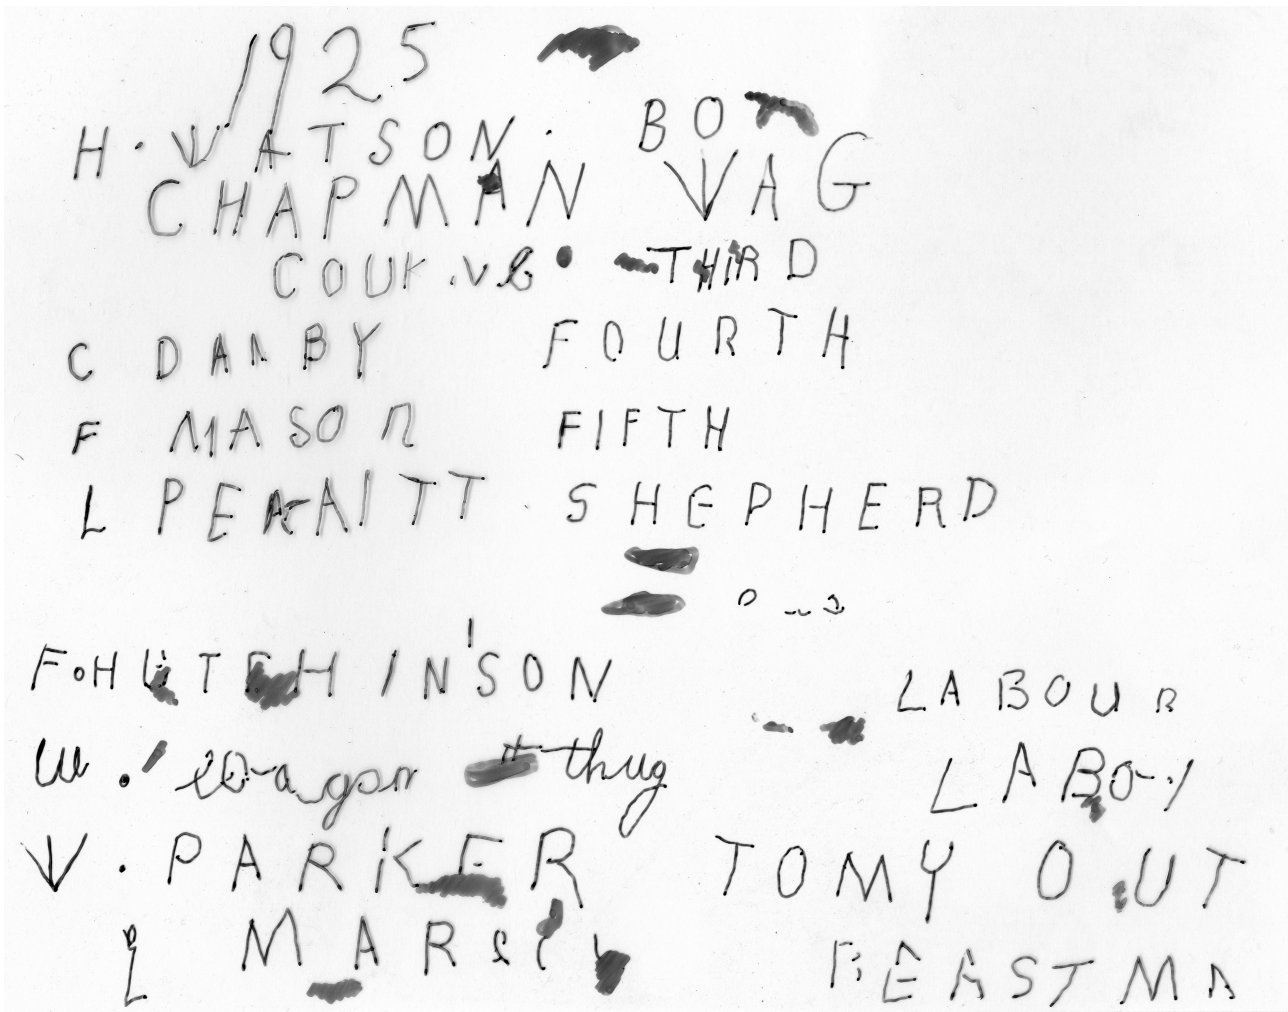 1925
H. WATSON. BO
CHAPMAN WAG
THIRD
C DANBY FOURTH
F MASON FIFTH
L SHEPHERD
F. HUTCHINSON LABOUR
W. wagon thug LABOY
W. PARKER TOMY OUT
L BEASTMA